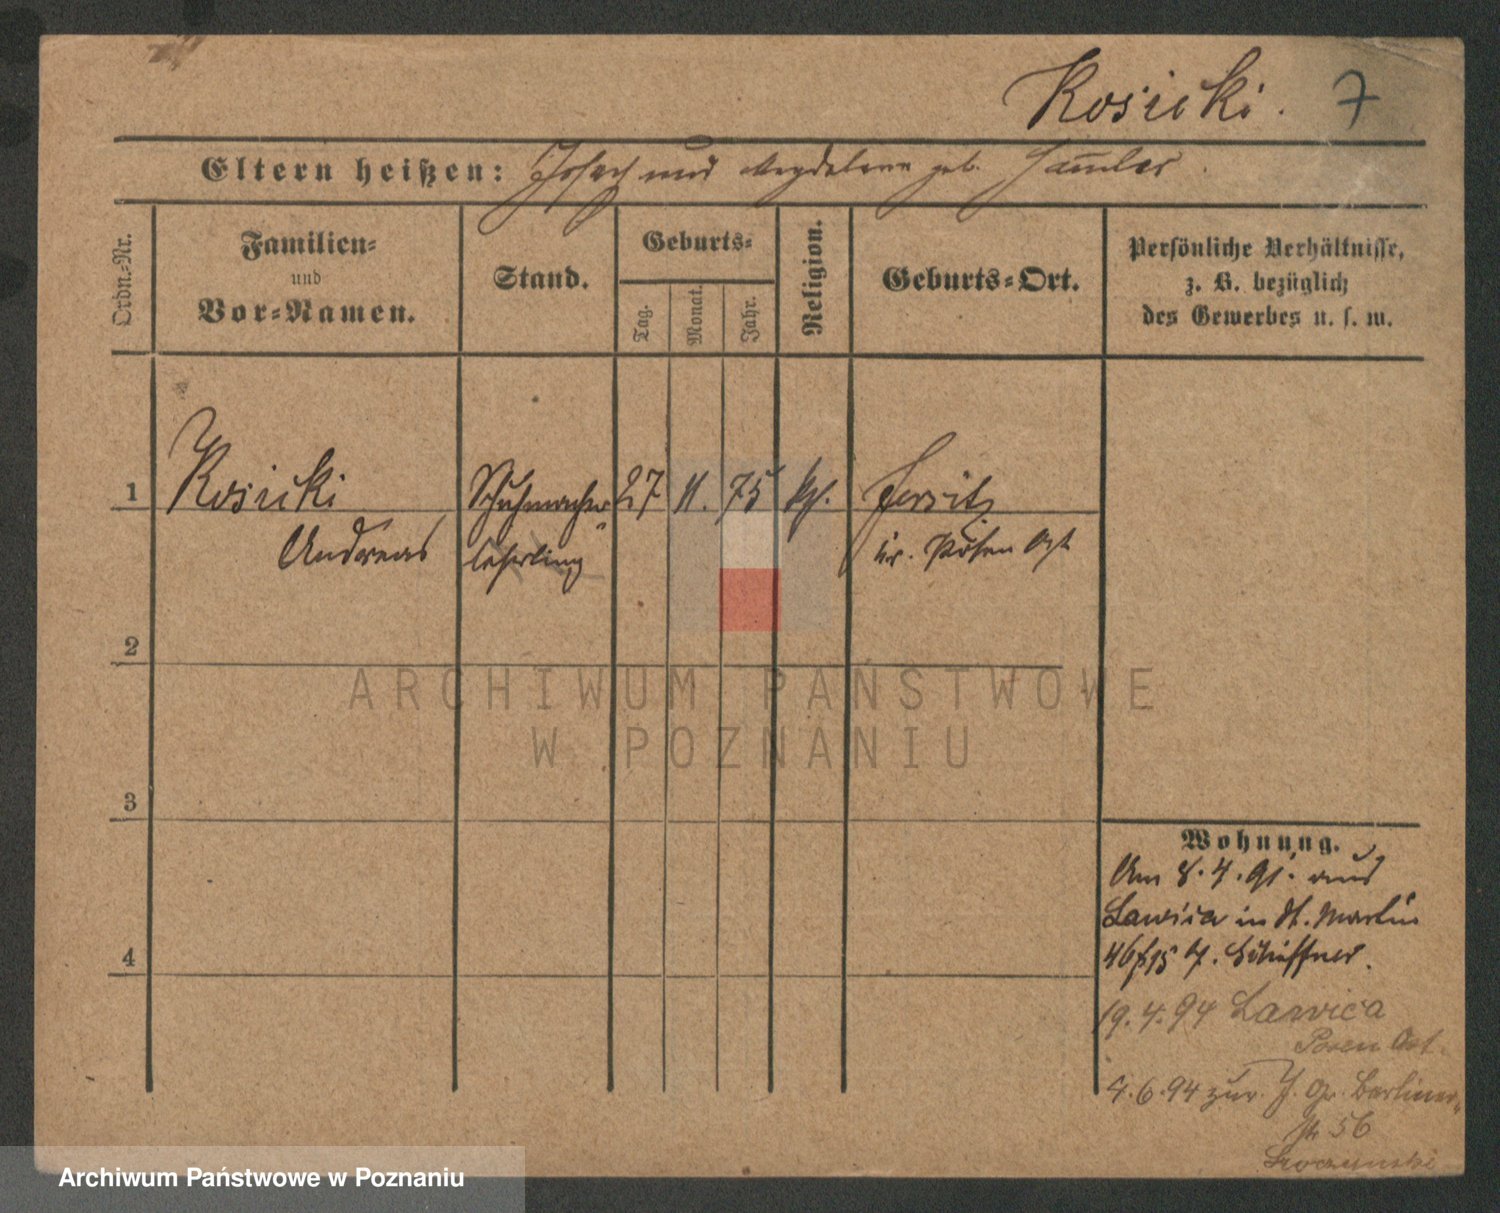 Rosicki. 7
Eltern heißen: Joseph und Magdalena geb.
Ordn.-Nr.
Familien-
und
Vor-Namen.
Stand.
Geburts-
Tag.
Monat.
Jahr.
Religion.
Geburts-Ort.
Persönliche Verhältnisse,
z. B. bezüglich
des Gewerbes u. s. w.
1 Rosicki Schuhmacher- 27 11. 75 kth. Jersitz
Andreas lehrling Kr. Posen Ost
2
ARCHIWUM PAŃSTWOWE
W POZNANIU
3
Wohnung.
Am 8.4.91. aus
Lawica in St. Martin
46/ Schiffner.
4
19.4.94 Lawica
Posen Ost.
4.6.94 zur. Gr. Berliner-
str 56
Archiwum Państwowe w Poznaniu